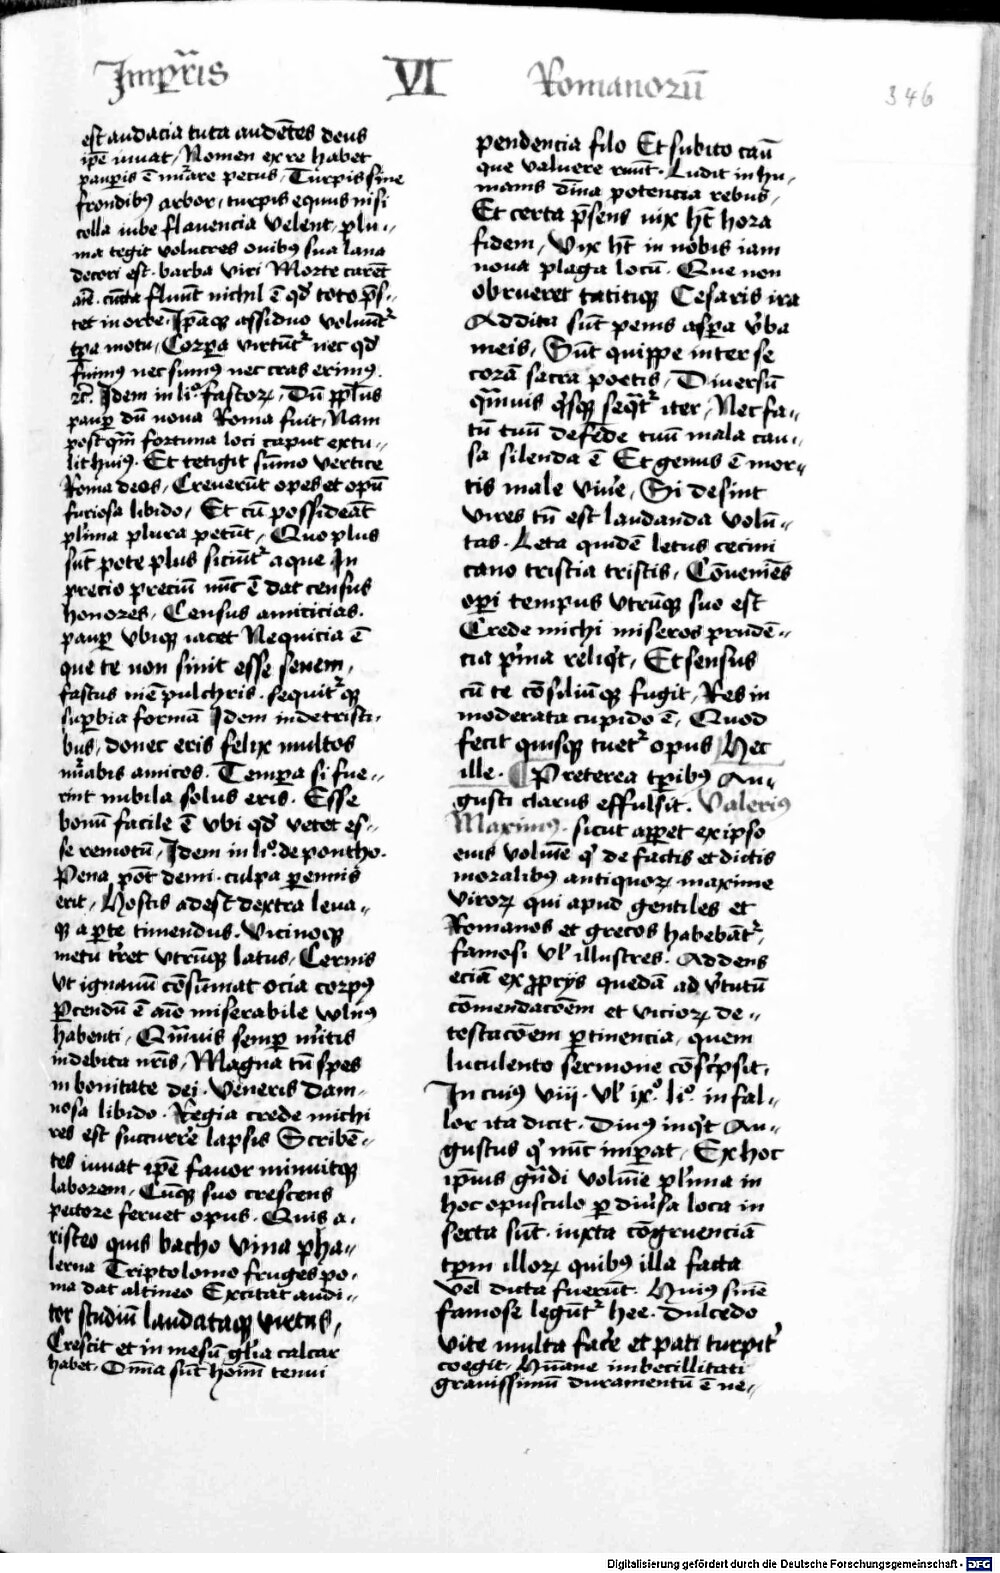 Imp̄r̄is VI Romanorū
346
est audacia tuta audētes deus
ip̄e iuuat, Nomen ex re habet
paup̄is ē nūrare pecus, Turpis sine
frondibꝰ arbor, turpis equus nisi
colla iube flauencia velent, plu-
ma tegit volucres ouibꝰ sua lana
decori est. barba viri Morte carēt
aīe. cūcta fluūt nichil ē qd̄ toto p̄s-
tet in orbe. Ip̄aqꝫ assiduo voluūtᷣ
tp̄a motu, Corp̄a virtūtᷣ nec qd̄
fuimꝰ nec sumꝰ nec cras erimꝰ.
ꝛc̄. Idem in li.° fastoꝝ, Dū pp̄lus
paup̄ dū noua Roma fuit, Nam
postqm̄ fortuna loci caput extu-
lit huiꝰ. Et tetigit sūmo vertice
Roma deos, Creuerūt opes et opū
furiosa libido, Et cū possideāt
pl'ima plura petūt, Quo plus
sūt pote plus siciūtᷣ aque In
precio preciū nūc ē dat census
honores, Census amicicias.
paup̄ vbiqꝫ iacet Nequicia ē
que te non sinit esse senem,
fastus inē pulchris. sequitᷣqꝫ
sup̄bia formā Idem in de tristi-
bus, donec eris felix multos
nūrabis amicos. Temp̄a si fue-
rint nubila solus eris. Esse
bonū facile ē vbi qd̄ vetet es-
se remotū, Idem in li.° de pontho.
Pena pōt demi. culpa p̄ennis
erit, Hostis adest dextra leua-
qꝫ a p̄te timendus. Vicinoqꝫ
metu t'ret vtrūqꝫ latus, Cernis
vt ignauū cōsūmat ocia corpꝰ
P̄cendū ē aīo miserabile vulnꝰ
habenti, Qm̄uis semp̄ īm'itis
indebita nr̄is, Magna tn̄ spes
in bonitate dei. Veneris dam-
nosa libido. Regia crede michi
res est succurr'e lapsis Scribē-
tes iuuat ip̄e fauor minuitqꝫ
laborem, Cūqꝫ suo crescens
pectore feruet opus. Quis a-
risteo quis bacho vina pha-
lerna Triptolomo fruges po-
ma dat altineo Excitat audi-
tor studiū laudataqꝫ virtus,
Crescit et in mēsū gl'ia calcar
habet. Om̄ia sūt hoīm̄ tenui
pendencia filo Et subito casū
que valuere ruūt. Ludit in hu-
manis diīna potencia rebus,
Et certa p̄sens vix hꝫ hora
fidem, Vix hꝫ in nobis iam
noua plaga locū. Que non
obrueret tatitiqꝫ Cesaris ira
Addita sūt penis asp̄a v'ba
meis, Sūt quippe inter se
corā sacra poetis, Diuersū
qm̄uis q'sqꝫ seqītᷣ iter, Nec fa-
tū tuū defēde tuū mala cau-
sa silenda ē Et genus ē mor-
tis male viu'e, Si desint
vires tn̄ est laudanda volū-
tas. Leta quidē letus cecini
cano tristia tristis, Cōueniēs
op̄i tempus vtrūqꝫ suo est
Crede michi miseros prudē-
cia p'ma reliq't, Et sensus
cū te cōsiliūqꝫ fugit, Res in
moderata cupido ē, Quod
fecit quisqꝫ tuetᷣ opus Hec
ille. ¶ Preterea tp̄ibꝰ Au-
gusti clarus effulsit. Valeriꝰ
Maximꝰ. sicut app̄et ex ipso
eius volūīe q' de factis et dictis
moralibꝰ antiquoꝝ maxime
viroꝝ qui apud gentiles et
Romanos et grecos habebātᷣ,
famosi vl' illustres. Addens
eciā ex propriis quedā ad v'tutū
cōmendacōem et vicioꝝ de-
testacōem p̄tinencia, quem
luculento sermone cōsc'psit,
In cuiꝰ viij. vl' ix.° li.° in fal-
lor ita dicit. Diuꝰ inq't Au-
gustus q' nūc imp̄at, Ex hoc
ip̄ius gn̄di volūīe pl'ima in
hoc opusculo p̄ diu'sa loca in
serta sūt. iuxta cōgruenciā
tp̄m illoꝝ quibꝰ illa facta
vel dicta fuerūt. Huiꝰ sn̄ie
famose legūtᷣ hee. Dulcedo
vite multa fac'e et pati turpit'
coegit, Hūane imbecillitati
grauissimū duramentū ē ne-
Digitalisierung gefördert durch die Deutsche Forschungsgemeinschaft - DFG